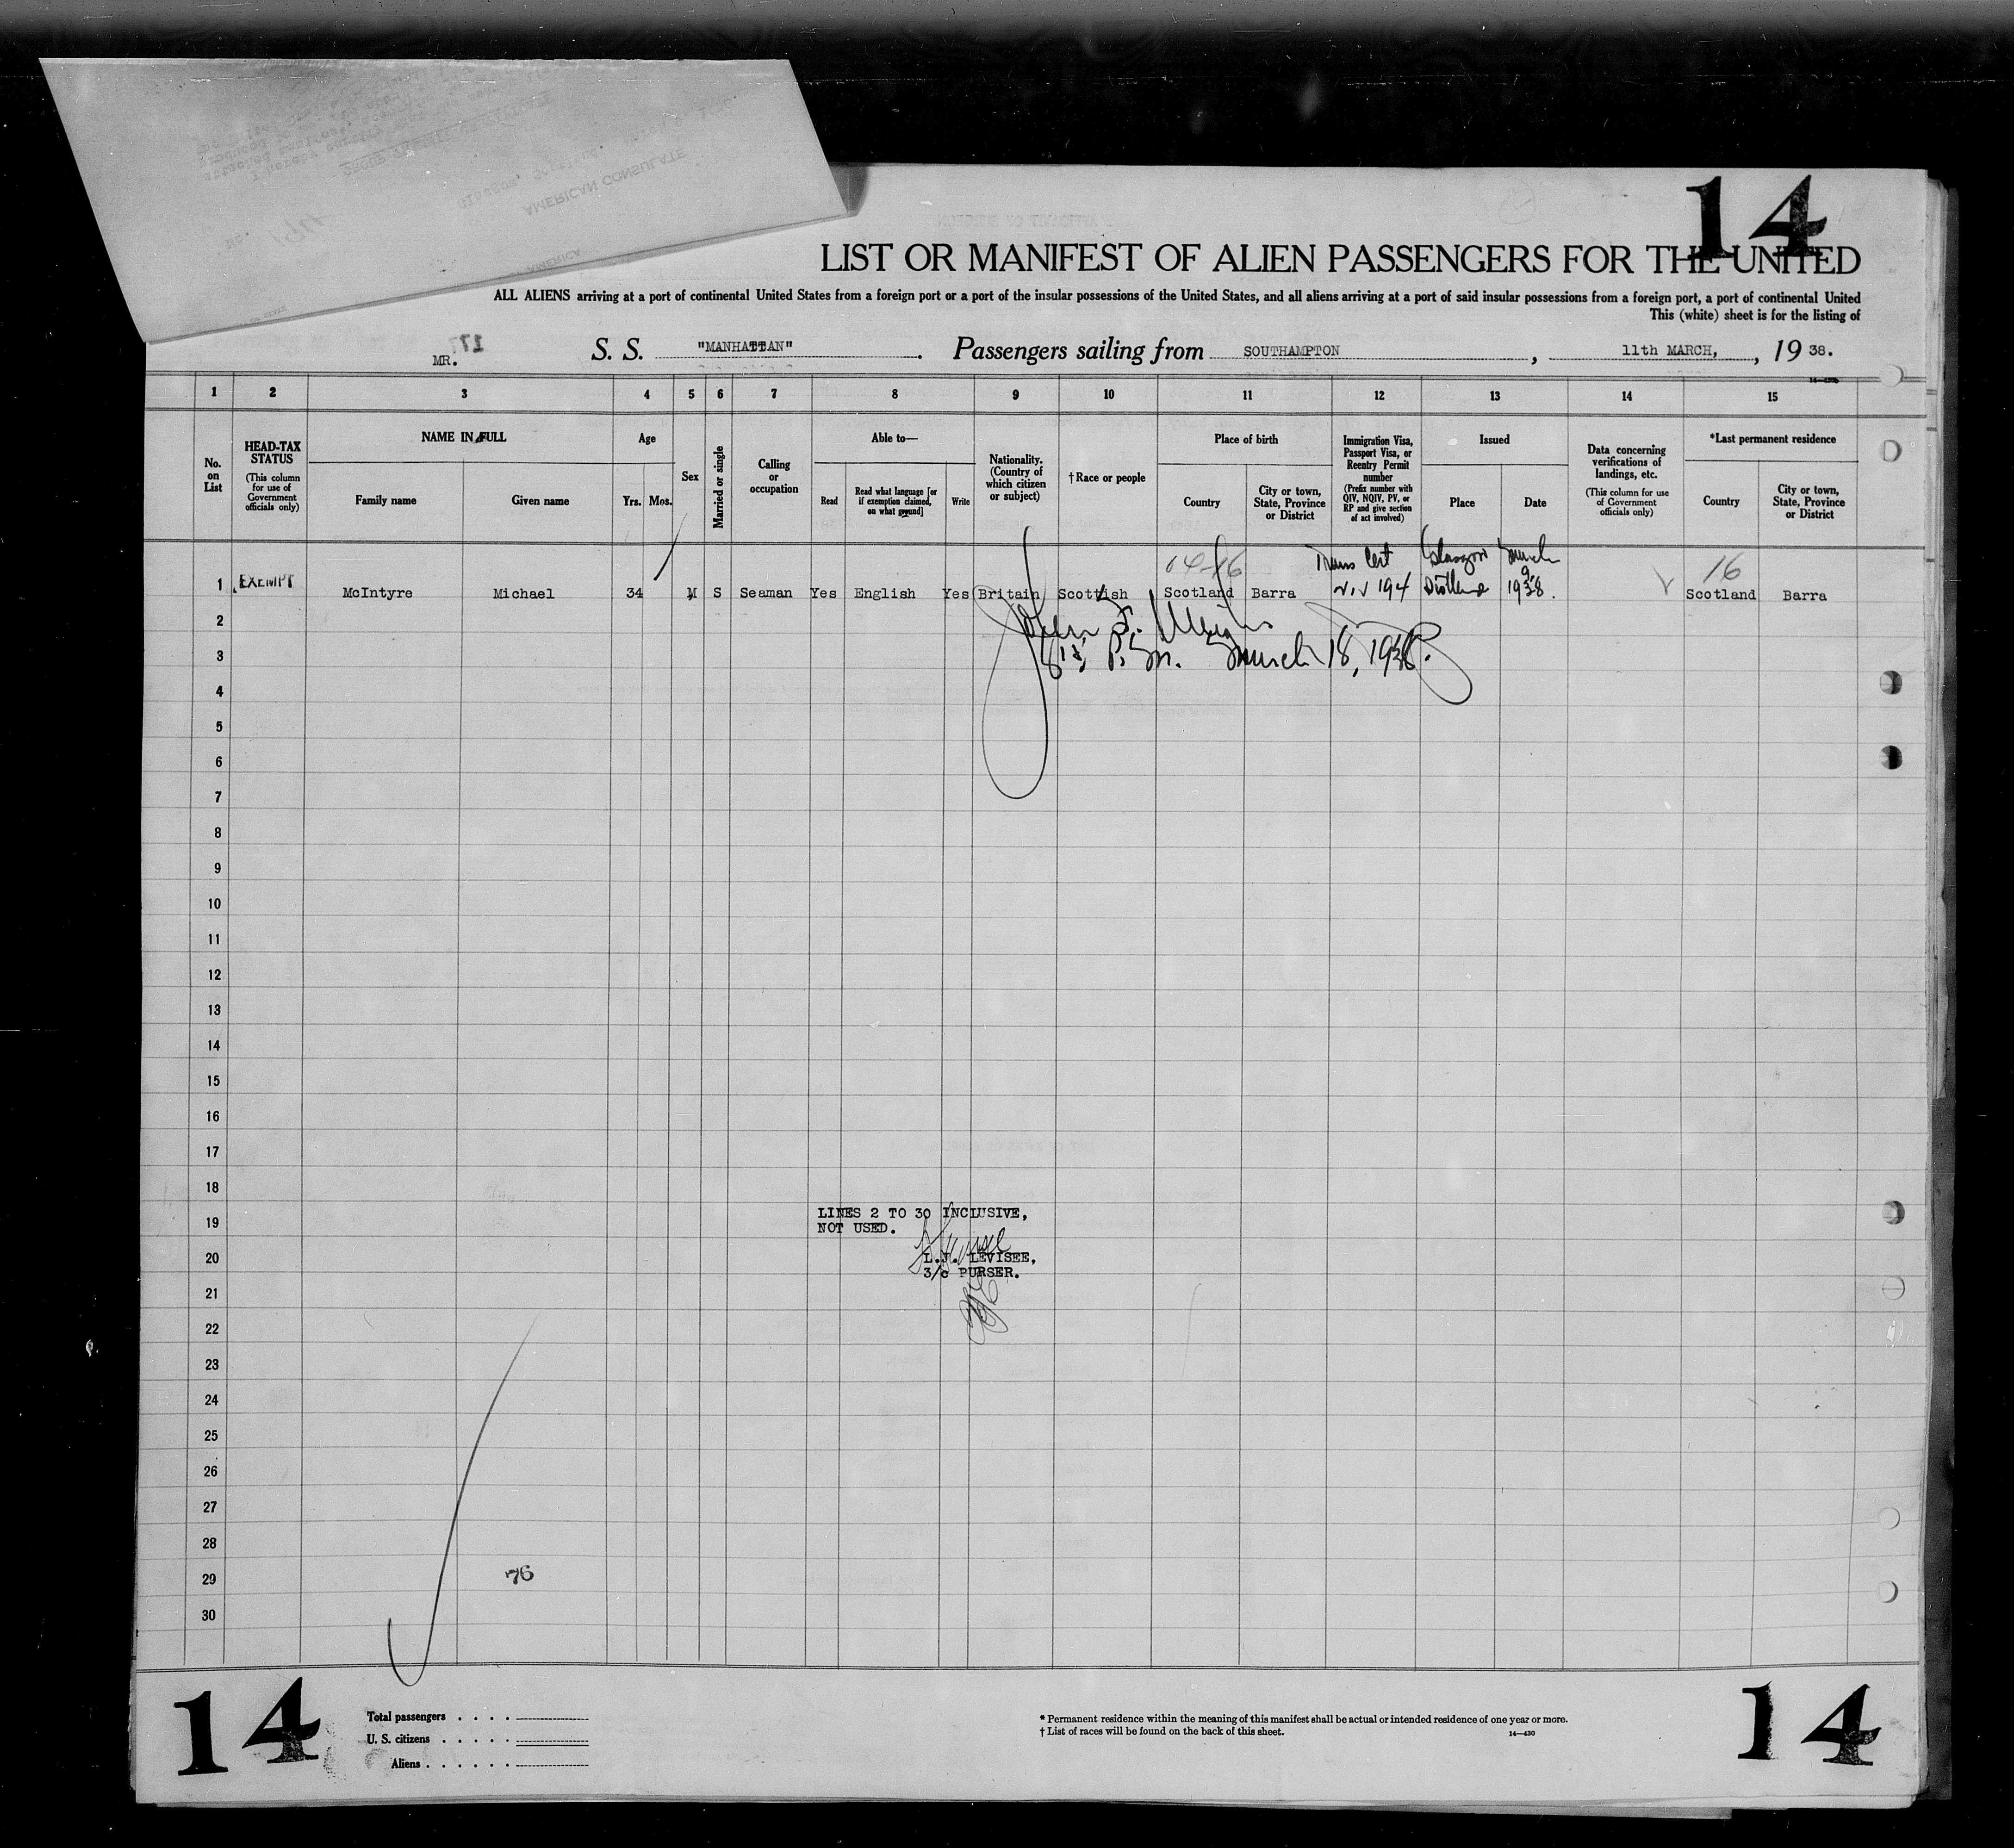 AMERICAN CONSULATE
14
LIST OR MANIFEST OF ALIEN PASSENGERS FOR THE UNITED
ALL ALIENS arriving at a port of continental United States from a foreign port or a port of the insular possessions of the United States, and all aliens arriving at a port of said insular possessions from a foreign port, a port of continental United
This (white) sheet is for the listing of
MR. 177 S. S. "MANHATTAN". Passengers sailing from SOUTHAMPTON, 11th MARCH, , 19 38.
1 2 3 4 5 6 7 8 9 10 11 12 13 14 15
No. on List
HEAD-TAX STATUS (This column for use of Government officials only)
NAME IN FULL
Family name Given name
Age
Yrs. Mos.
Sex
Married or single
Calling or occupation
Able to—
Read Read what language [or if exemption claimed, on what ground] Write
Nationality. (Country of which citizen or subject)
†Race or people
Place of birth
Country City or town, State, Province or District
Immigration Visa, Passport Visa, or Reentry Permit number (Prefix number with QIV, NQIV, PV, or RP and give section of act involved)
Issued
Place Date
Data concerning verifications of landings, etc. (This column for use of Government officials only)
*Last permanent residence
Country City or town, State, Province or District
Trans Cert Glasgow March 9,
1 EXEMPT McIntyre Michael 34 M S Seaman Yes English Yes Britain Scottish Scotland Barra 194 Scotland 1938. 16 Scotland Barra
2
3 P.M. March 18, 1938.
4
5
6
7
8
9
10
11
12
13
14
15
16
17
18
LINES 2 TO 30 INCLUSIVE,
19 NOT USED.
20 L.J. LEVISEE,
3/c PURSER.
21
22
23
24
25
26
27
28
29 76
30
14
Total passengers . . . .
U. S. citizens . . . . .
Aliens . . . . . .
* Permanent residence within the meaning of this manifest shall be actual or intended residence of one year or more.
† List of races will be found on the back of this sheet. 14—430
14